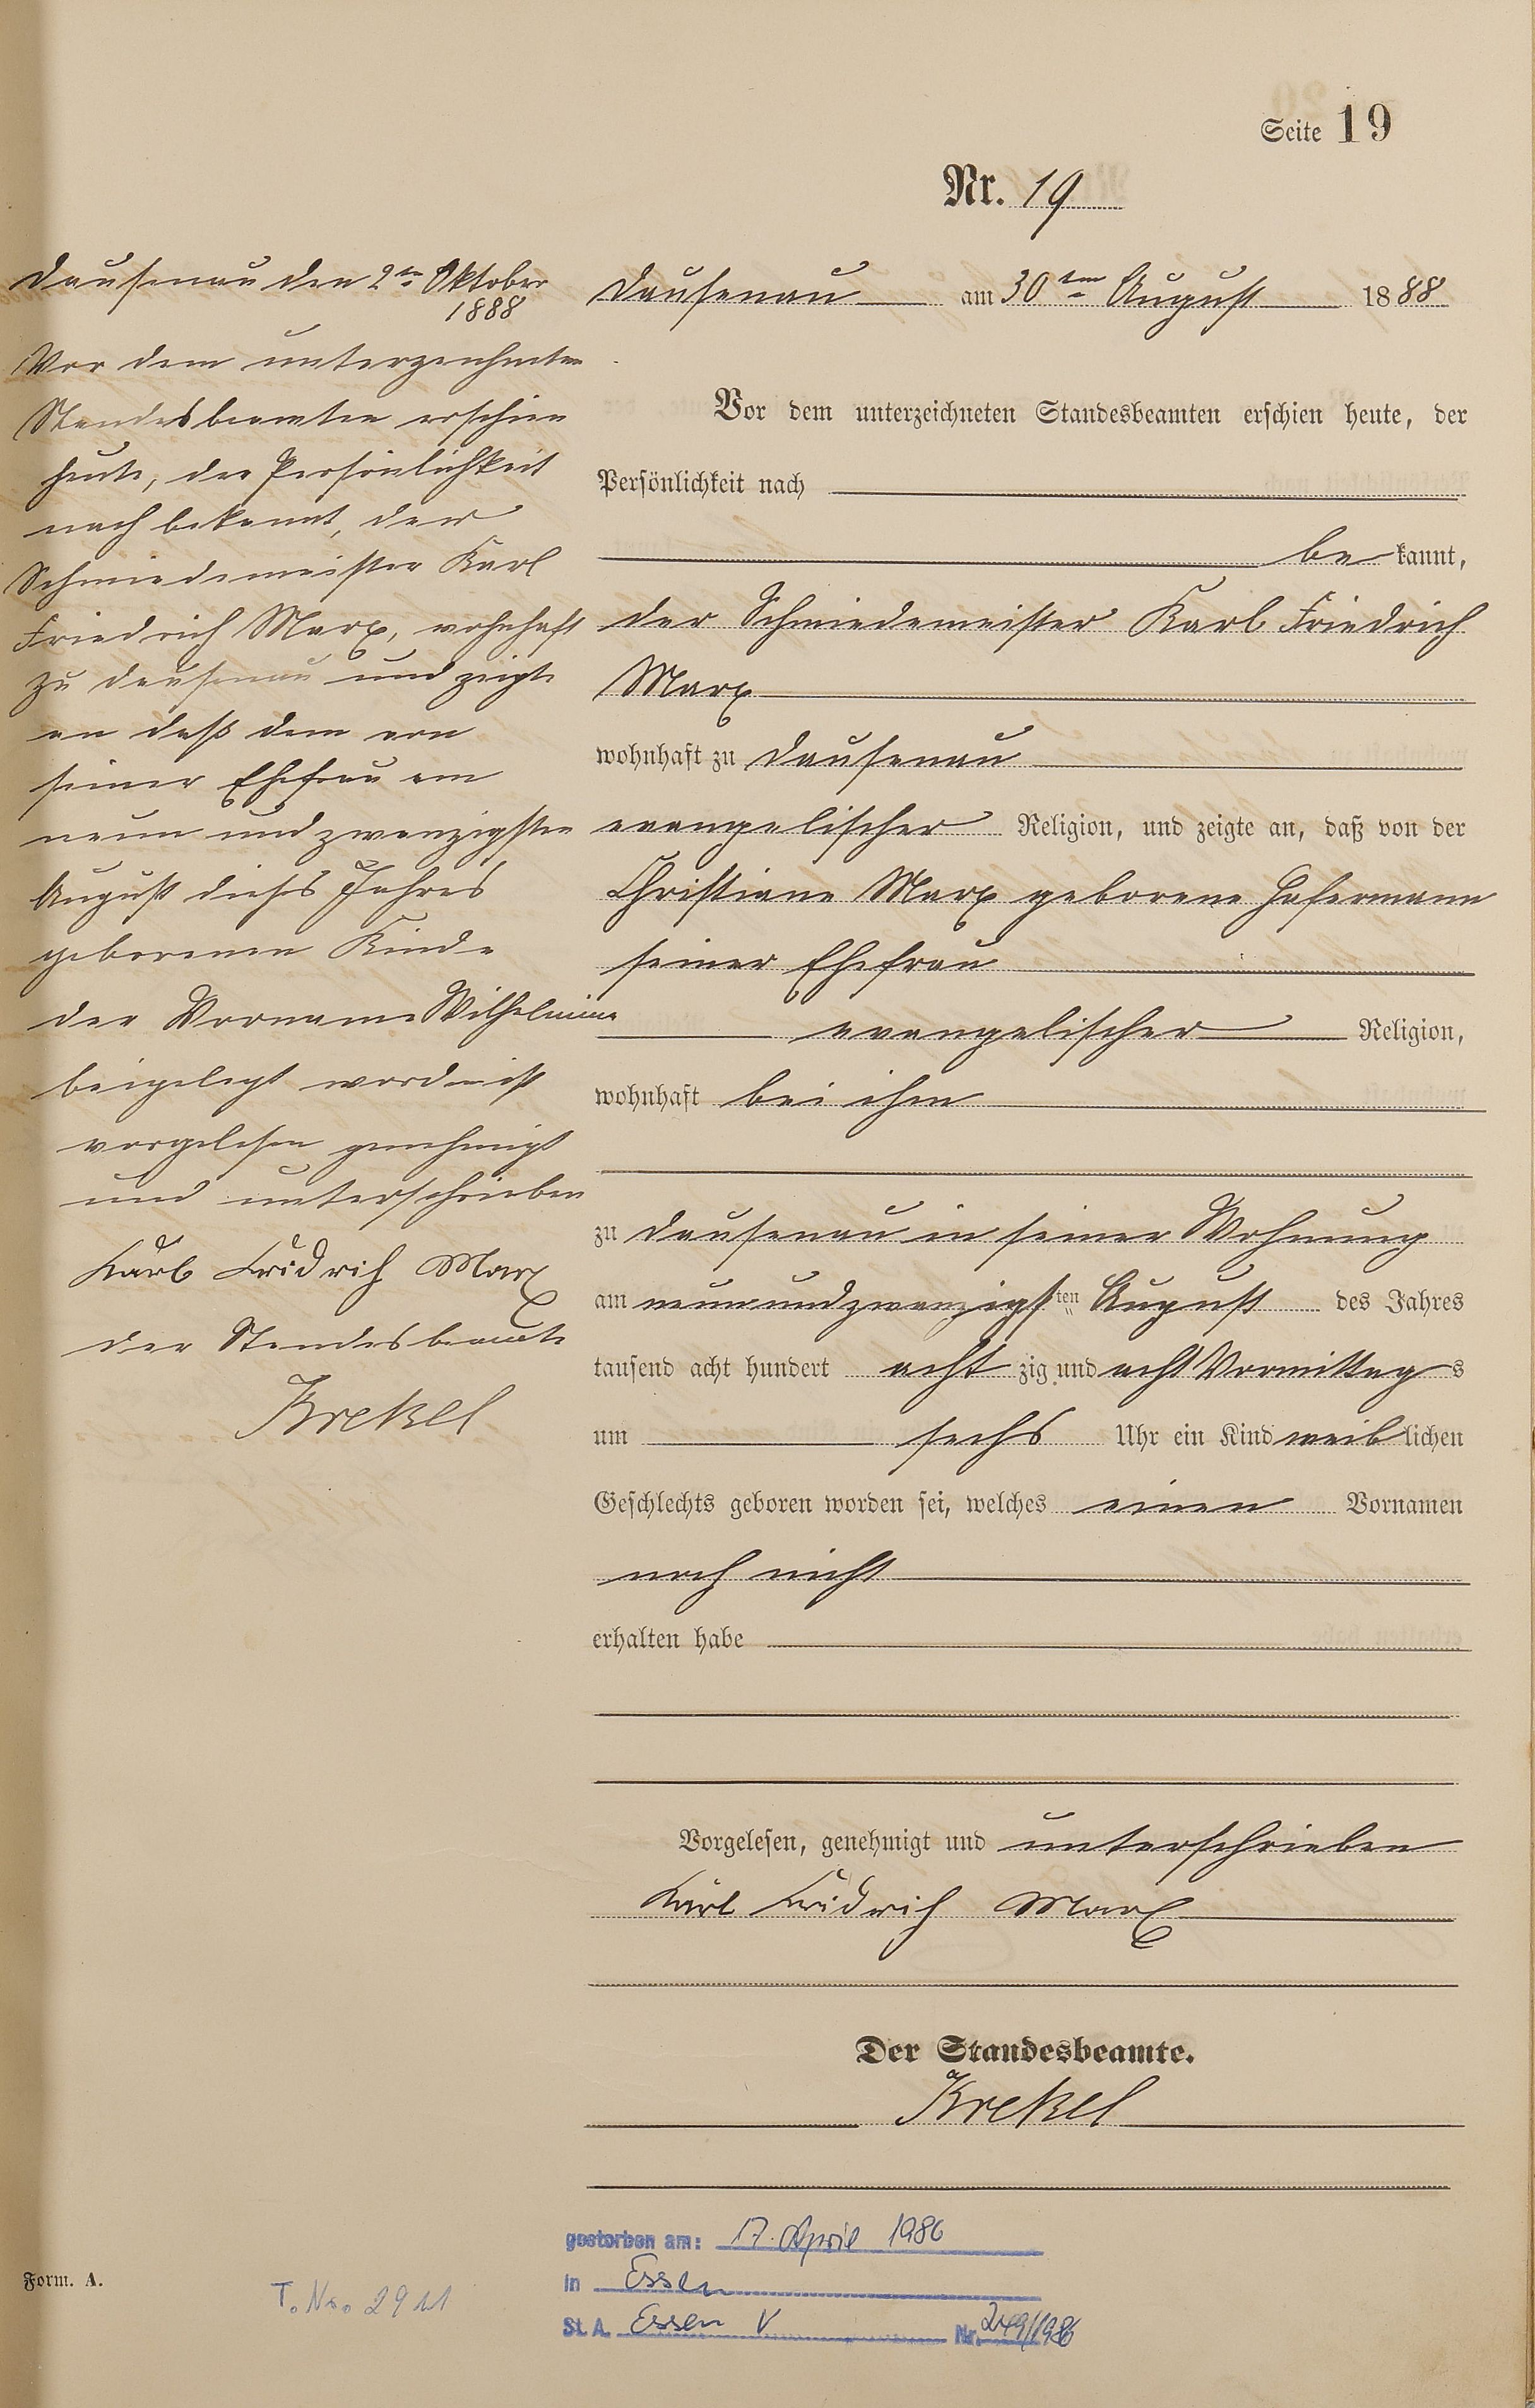 Seite 19
Nr. 19
Dausenau am 30ten August 1888
Vor dem unterzeichneten Standesbeamten erschien heute, der
Persönlichkeit nach
bekannt,
der Schmiedemeister Karl Friedrich
Marx
wohnhaft zu Dausenau
evangelischer Religion, und zeigte an, daß von der
Christiane Marx geborene Hafermann
seiner Ehefrau
evangelischer Religion,
wohnhaft bei ihm
zu Dausenau in seiner Wohnung
am neunundzwanzigsten August des Jahres
tausend acht hundert achtzig und acht Vormittags
um sechs Uhr ein Kind weiblichen
Geschlechts geboren worden sei, welches einen Vornamen
noch nicht
erhalten habe
Vorgelesen, genehmigt und unterschrieben
Karl Fridrich Marx
Der Standesbeamte.
Krekel
Dausenau den 2ten Oktober
1888
Vor dem unterzeichneten
Standesbeamten erschien
heute, der Persönlichkeit
nach bekannt, der
Schmiedemeister Karl
Friedrich Marx, wohnhaft
zu Dausenau und zeigte
an daß dem von
seiner Ehefrau am
neun und zwanzigsten
August dieses Jahres
geborenen Kinde
der Vorname Wilhelmine
beigelegt worden ist
vorgelesen genehmigt
und unterschrieben
Karl Fridrich Marx
der Standesbeamte
Krekel
gestorben am: 17. April 1986
in Essen
St. A. Essen V Nr. 249/1986
Form. A.
T. Nr. 2911